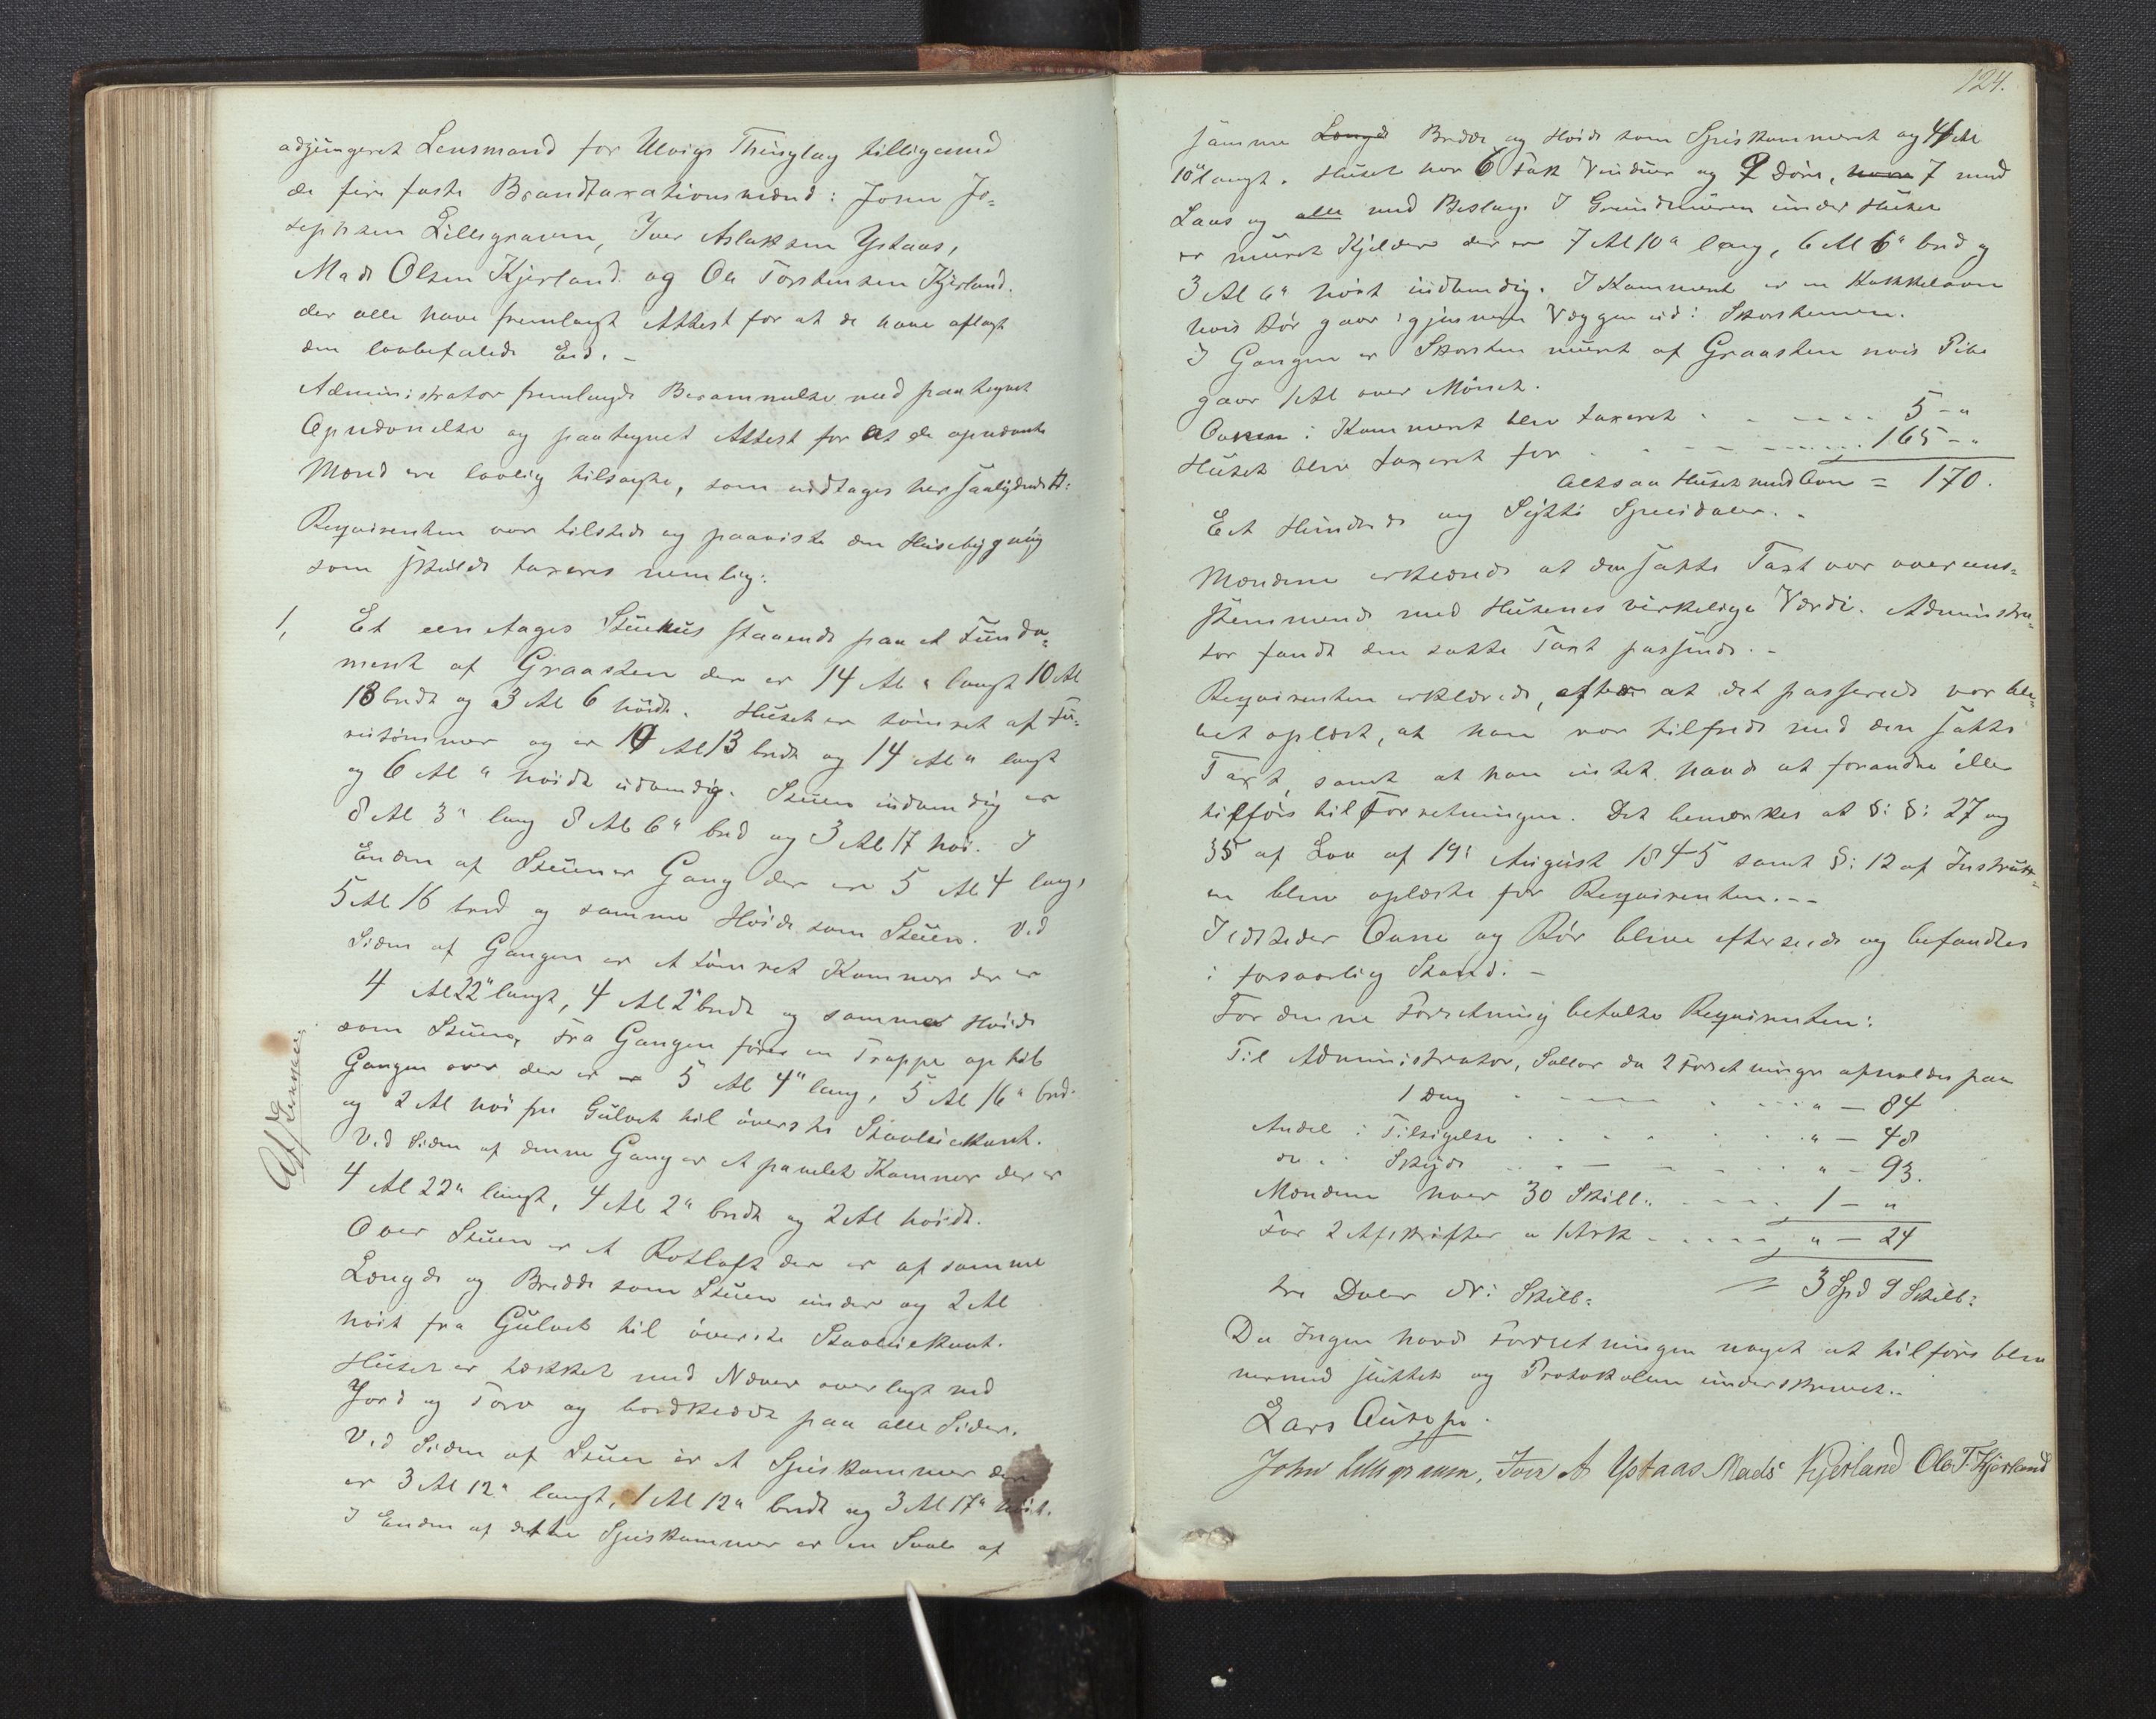 adjungeret Lensmand for Ulvigs Thinglag tilligemed
de fire faste Brandtaxationsmænd: John Jo-
sephsen Lillegraven, Iver Aslaksen Ystaas,
Mads Olsen Kjerland og Ole Torstensen Kjerland.
der alle have fremlagt Attest for at de have aflagt
den lovbefalede Eed. -
Administrator fremlagde Berammelse med paategnet
Opnævnelse og paategnet Attest for at de opnævnte
Mænd ere lovlig tilsagte, som indtages her saalydende H:
Requirenten var tilstede og paaviste den Huusebygning
som skulde taxeres nemlig:
1, Et een etages Stuehus staaende paa et Funda-
ment af Graasten der er 14 Al " langt 10 Al
18 bredt og 3 Al 6 høidt. Huset er tømret af Fu-
rutømmer og er 10 Al 13 bredt og 14 Al " langt
og 6 Al " høidt udvendig. Stuen indvendig er
8 Al 3" lang 8 Al 6" bred og 3 Al 17 høi. I
Enden af Stuen er Gang der er 5 Al 4 lang,
5 Al 16 bred og samme Høide som Stuen. Ved
Siden af Gangen er et tømret Kammer der er
4 Al 22" langt, 4 Al 2" bredt og samme Høide
som Stuen, Fra Gangen fører en Trappe op til
Gangen over der er 5 Al 4" lang, 5 Al 16" bred.
og 2 Al høi fra Gulvet til øverste Stavleiekant.
Ved Siden af denne Gang er et panelet Kammer der er
4 Al 22" langt, 4 Al 2" bredt og 2 Al høidt.
Over Stuen er et Rotloft der er af samme
Længde og Bredde som Stuen under og 2 Al
høit fra Gulvet til øverste Stavleiekant.
Huset er tækket med Næver overlagt med
Jord og Torv og bordklædt paa alle Sider.
Ved Siden af Stuen er et Spiskammer der
er 3 Al 12" langt, 1 Al 12" bredt og 3 Al 17" høit.
I Enden af dette Spiskammer er en Svale af
124.
samme Længde Bredde og Høide som Spiskammeret og 4 Al
10" langt. Huset har 6 Fak Vinduer og 9 Døre, hvoraf 7 med
Laas og alle med Beslag. I Grundmuren under Huset
er muret Kjelder der er 7 Al 10" lang, 6 Al 6" bred og
3 Al 6" høit indvendig. I Kammeret er en Kakkelovn
hvis Rør gaar igjennem Væggen ud i Skorstenen.
I Gangen er Skorsten muret af Graasten hvis Pibe
gaar 1 Al over Mønet.
Ovnen i Kammeret blev taxeret . . . . 5 - "
Huset blev taxeret for . . . . 165 - "
altsaa Huset med Ovn = 170.
Eet Hundrede og Sytti Speidaler. -
Mændene erklærede at den satte Taxt var overens-
stemmende med Husenes virkelige Værdi. Administra-
tor fandt den satte Taxt passende. -
Requirenten erklærede, efter at det passerede var ble-
vet oplæst, at han var tilfreds med den satte
Taxt, samt at han intet havde at forandre eller
tilføie til Forretningen. Det bemærkes at §: §: 27 og
35 af Lov af 19: August 1845 samt §: 12 af Instrux-
en blev oplæste for Requirenten. - -
Ildsteder Ovne og Rør bleve efterseede og befandtes
i forsvarlig Stand. -
For denne Forretning betalte Requirenten:
Til Administrator, Sallar da 2 Forretninger afholdes paa
1 Dag . . . . " - 84
Andel i Tilsigelse . . . . " - 48
do. i Skyds . . . . " - 93.
Mændene hver 30 Skill: . . . . 1 - "
For 2 Afskrifter a 1 Ark . . . . " - 24
tre Daler Ni Skill: = 3 Spd 9 Skill:
Da Ingen havde Forretningen noget at tilføre blev
hermed sluttet og Protokolen underskrevet. -
Lars
John Lillegraven, Iver A Ystaas Mads Kjerland Ole T. Kjerland